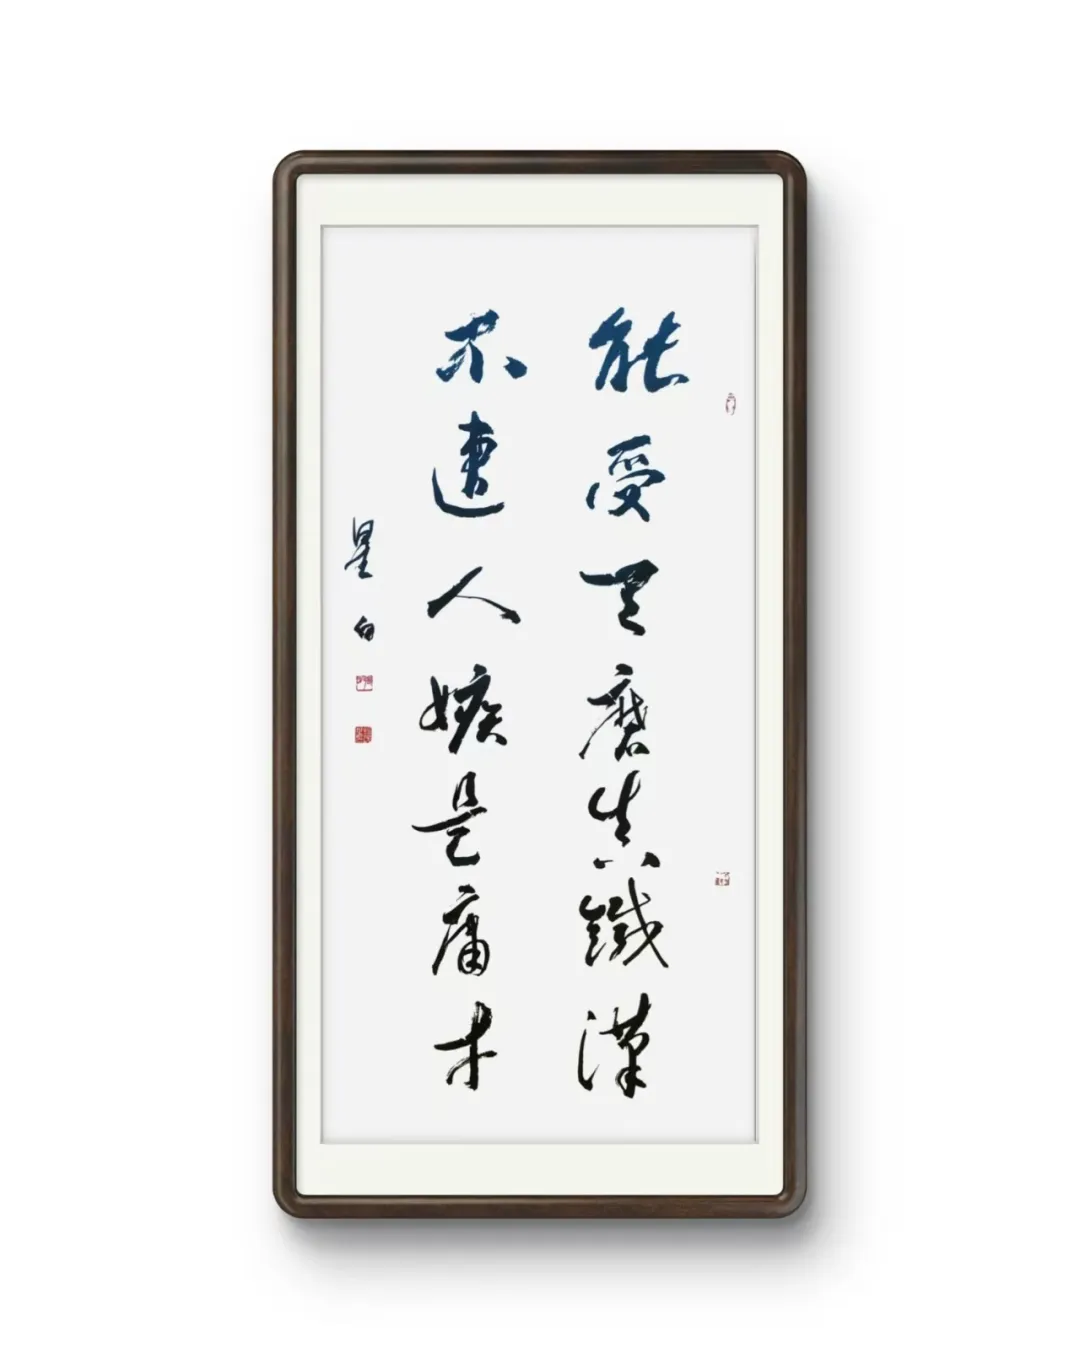 能受天磨真鐵漢
不遭人嫉是庸才
星白